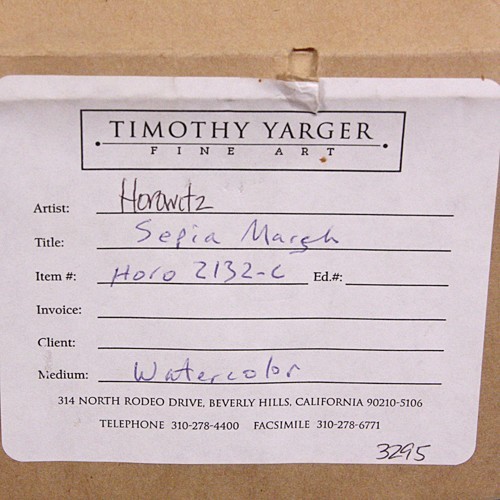 TIMOTHY YARGER
FINE ART
Artist: Horowitz
Title: Sepia Marsh
Item #: Horo 2132-C Ed.#:
Invoice:
Client:
Medium: Watercolor
314 NORTH RODEO DRIVE, BEVERLY HILLS, CALIFORNIA 90210-5106
TELEPHONE 310-278-4400 FACSIMILE 310-278-6771
3295